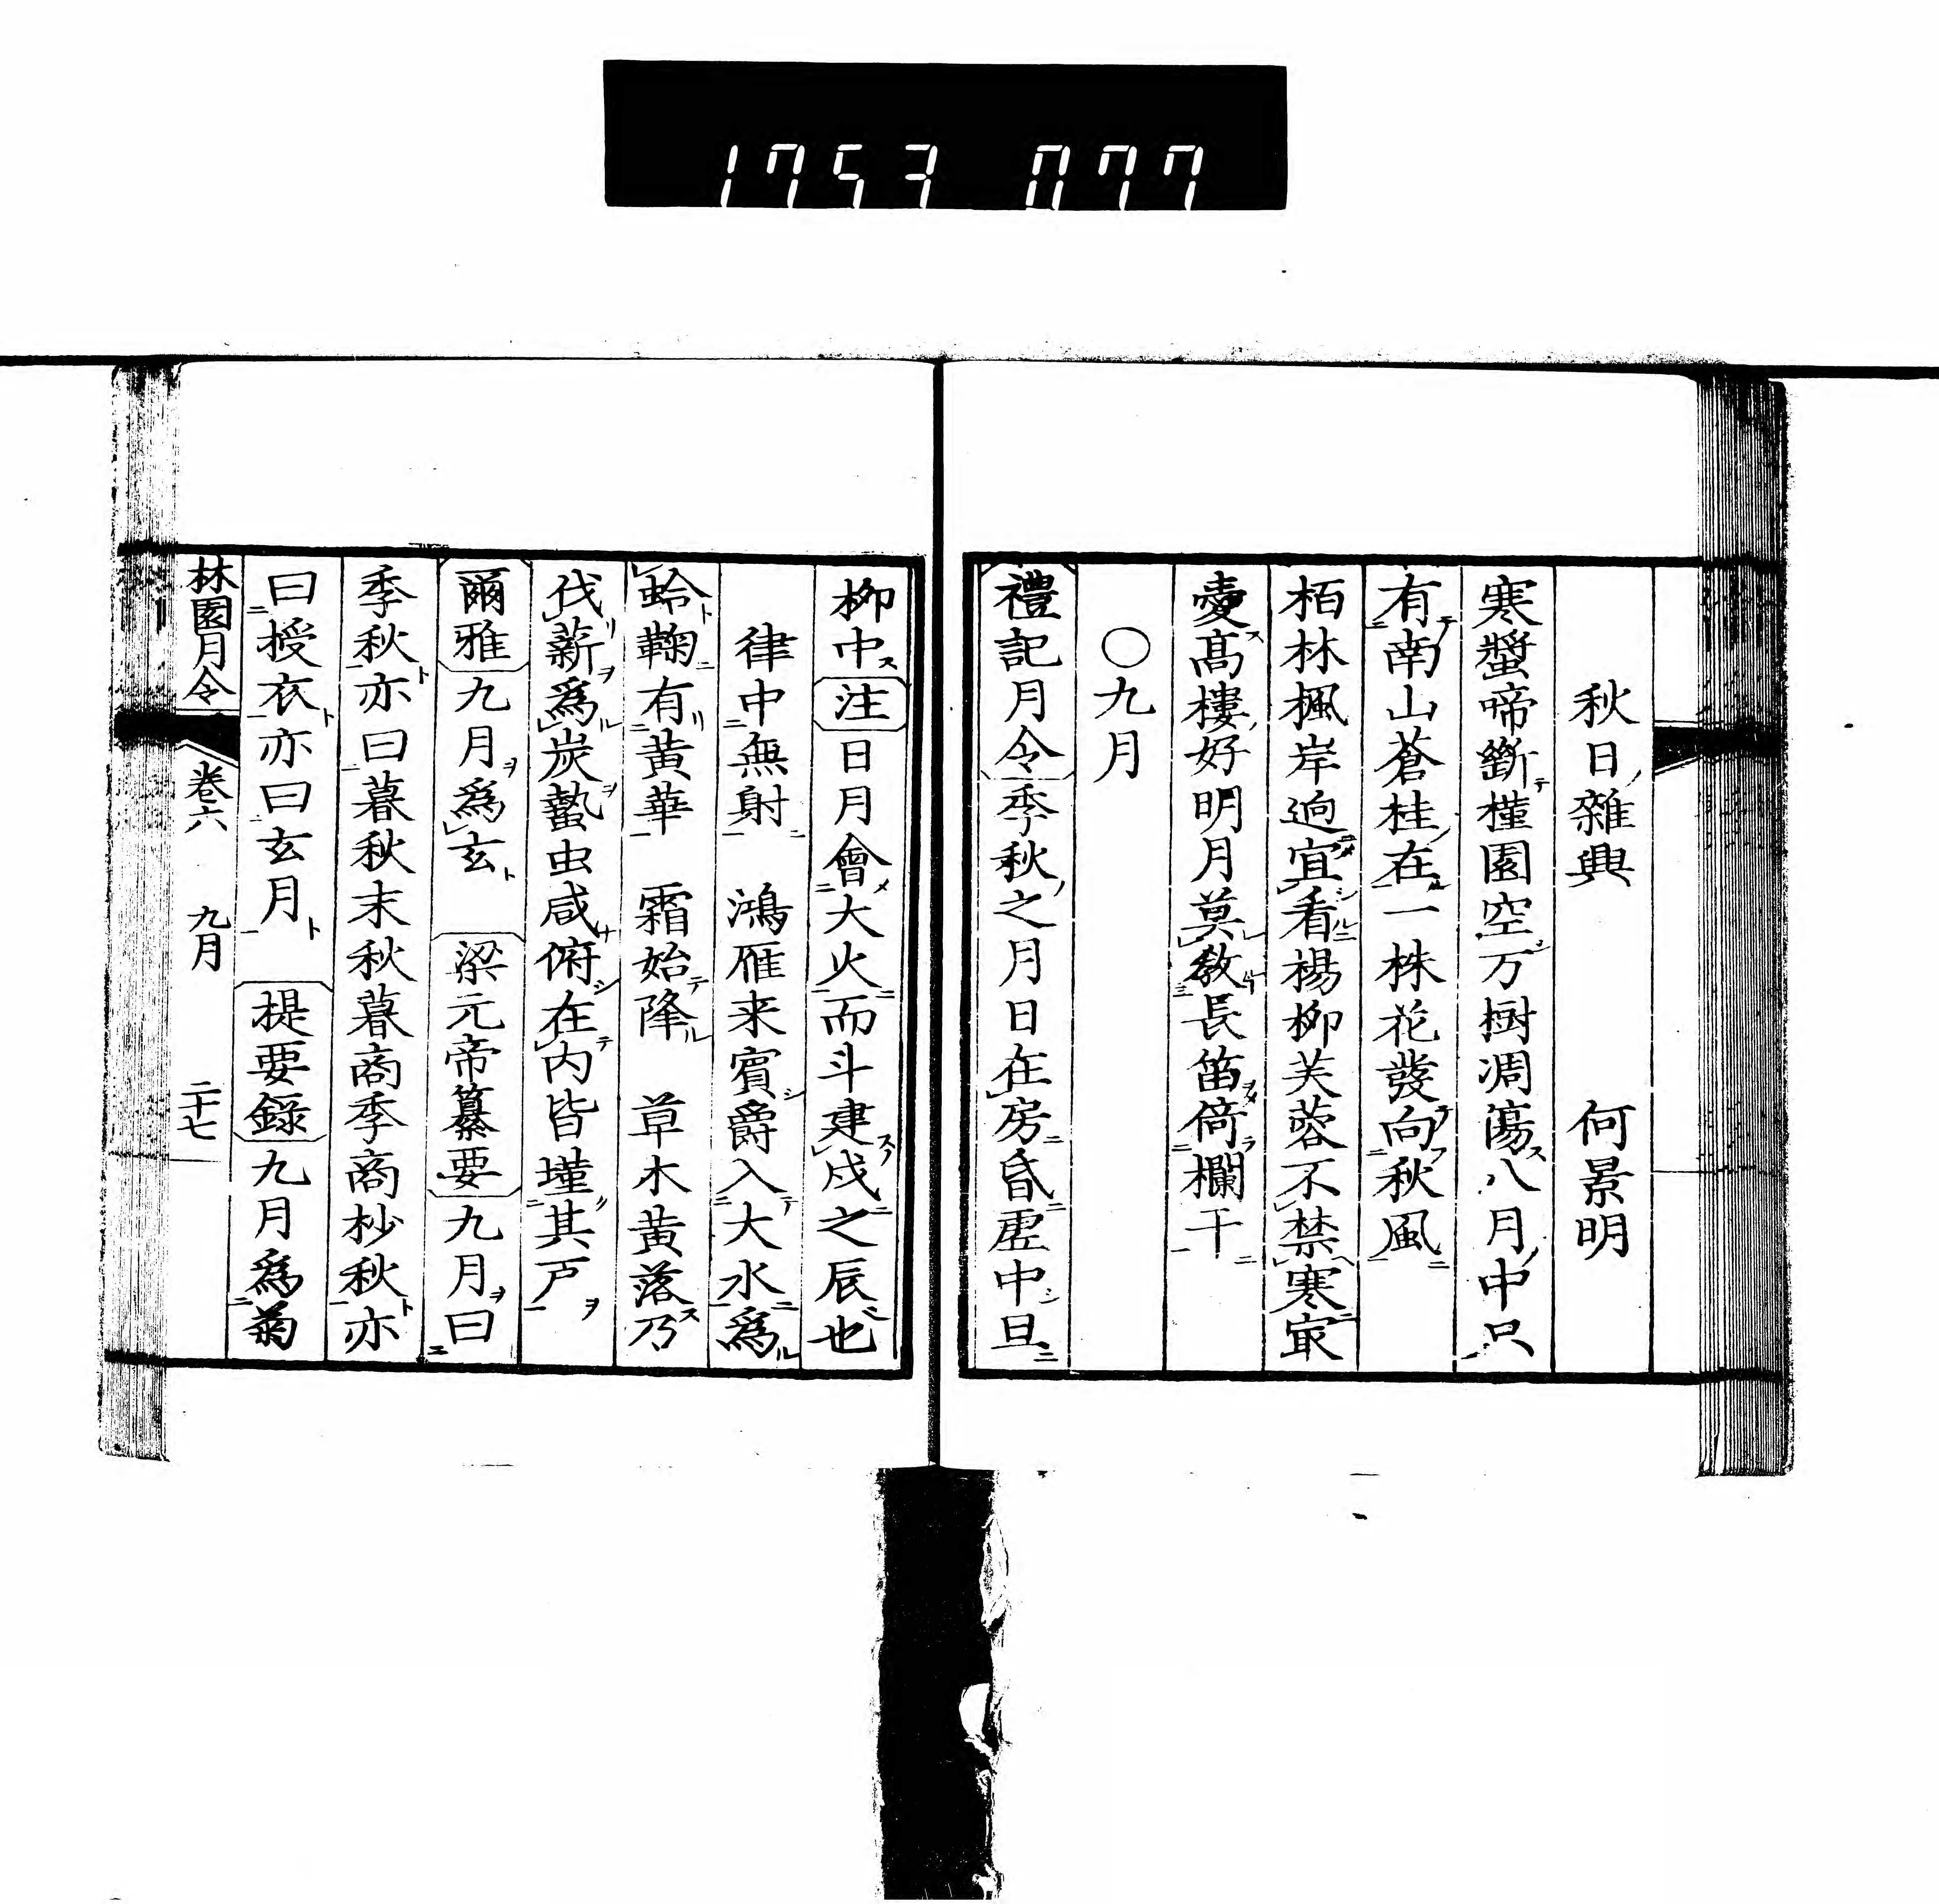 1753 077
秋日雜興　何景明
寒螿啼斷槿園空万樹凋傷八月中只
有南山蒼桂在一株花發向秋風
栢林楓岸逈宜看楊柳芙蓉不禁寒㝡
愛髙樓好明月莫敎長笛倚欄干
〇九月
禮記月令季秋之月日在房昏虚中旦
柳中注日月會大火而斗建戌之辰也
律中無射　鴻雁来賓爵入大水爲
蛤鞠有黃華　霜始降　草木黃落乃
伐薪爲炭蟄虫咸俯在内皆墐其戸
爾雅九月爲玄　梁元帝纂要九月曰
季秋亦曰暮秋末秋暮商季商杪秋亦
曰授衣亦曰玄月　提要錄九月爲菊
林園月令　卷六　九月　二十七